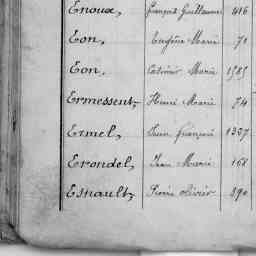 Enoux, François Guillaume 416
Eon, Eugène Marie 71
Eon, Casimir Marie
Ermessent, Henri Marie 74
Ermel, François
Erondel, Jean Marie 168
Esnault, Pierre Olivier 390